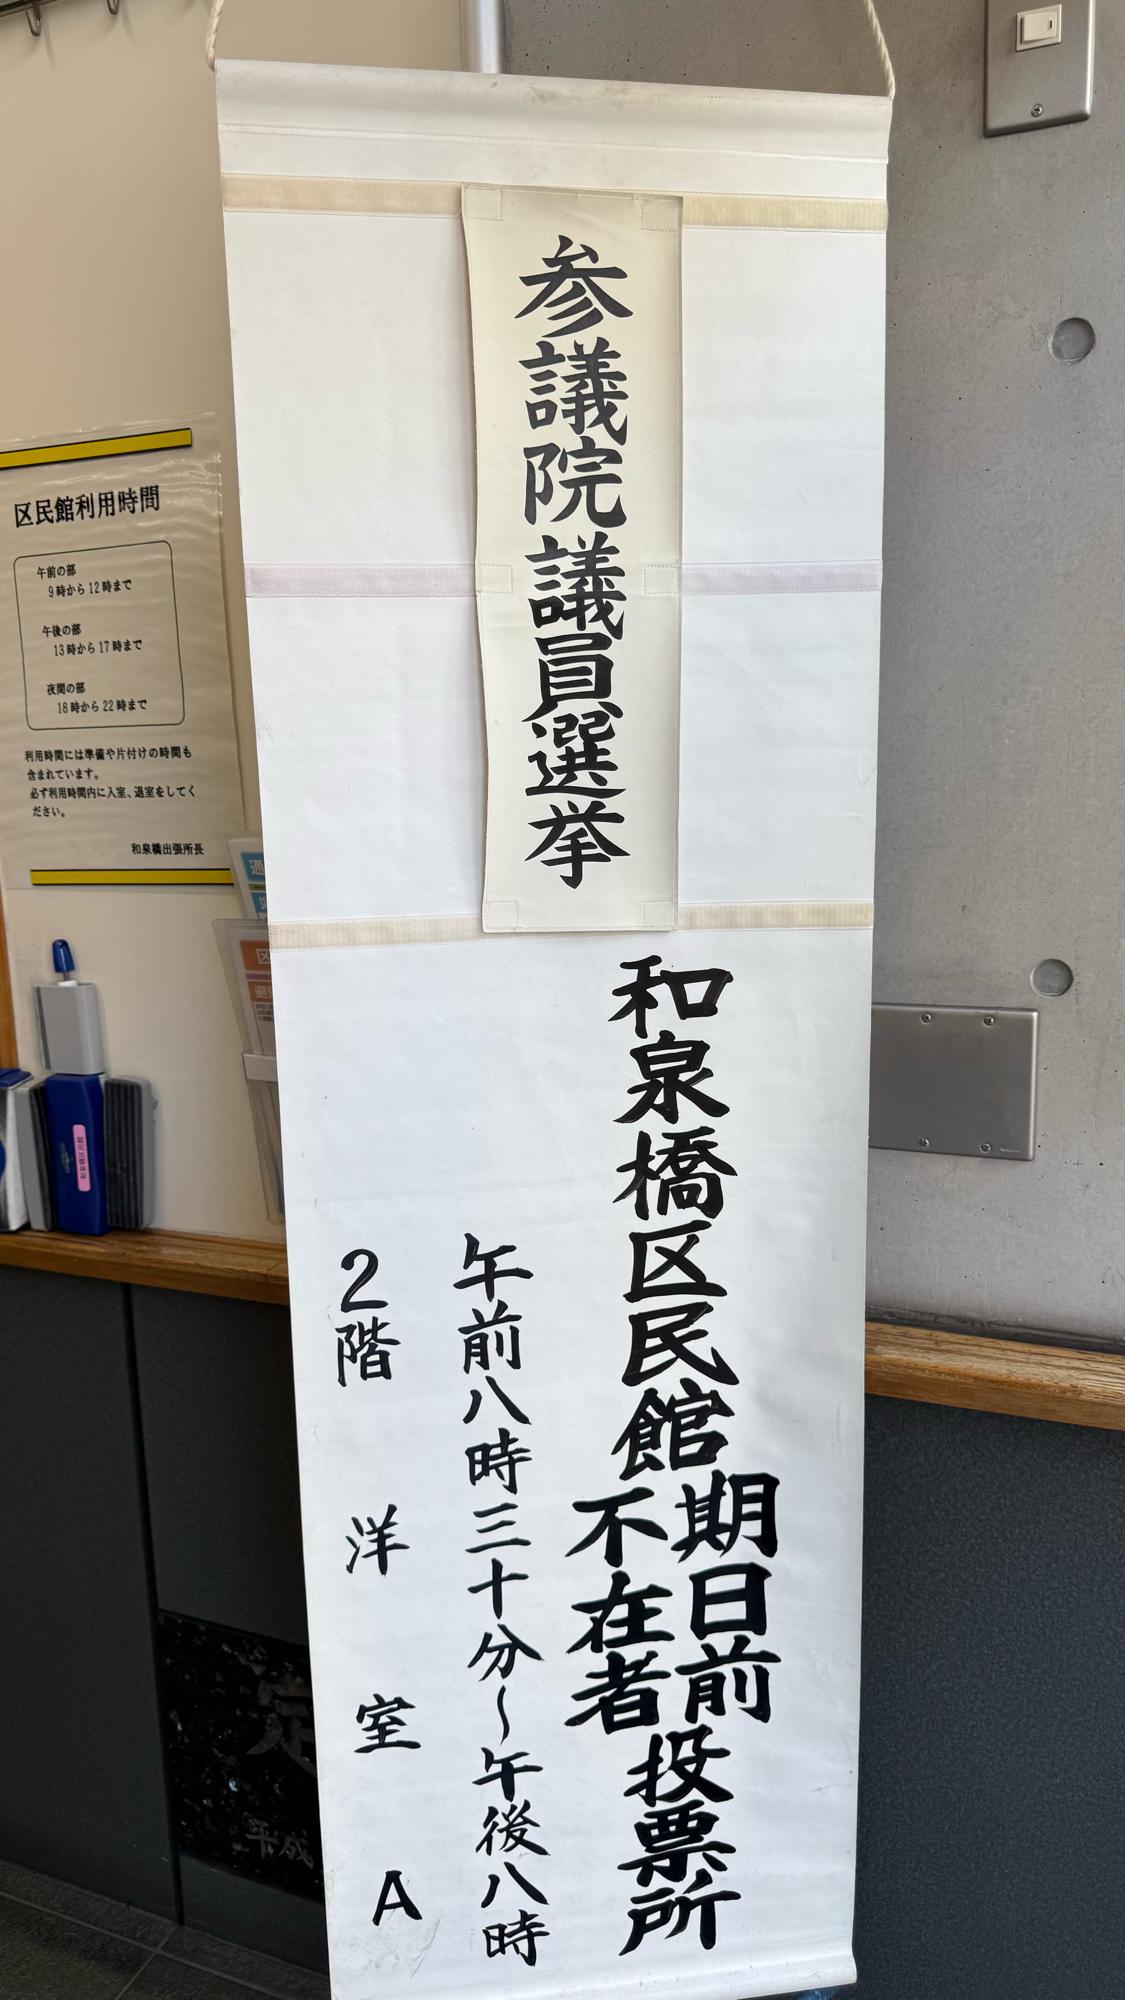 参議院議員選挙
和泉橋区民館
期日前
不在者
投票所
午前八時三十分～午後八時
2階 洋 室 A
区民館利用時間
午前の部
9時から12時まで
午後の部
13時から17時まで
夜間の部
18時から22時まで
利用時間には準備や片付けの時間も
含まれています。
必ず利用時間内に入室、退室をしてく
ださい。
和泉橋出張所長
和泉橋区民館
平成